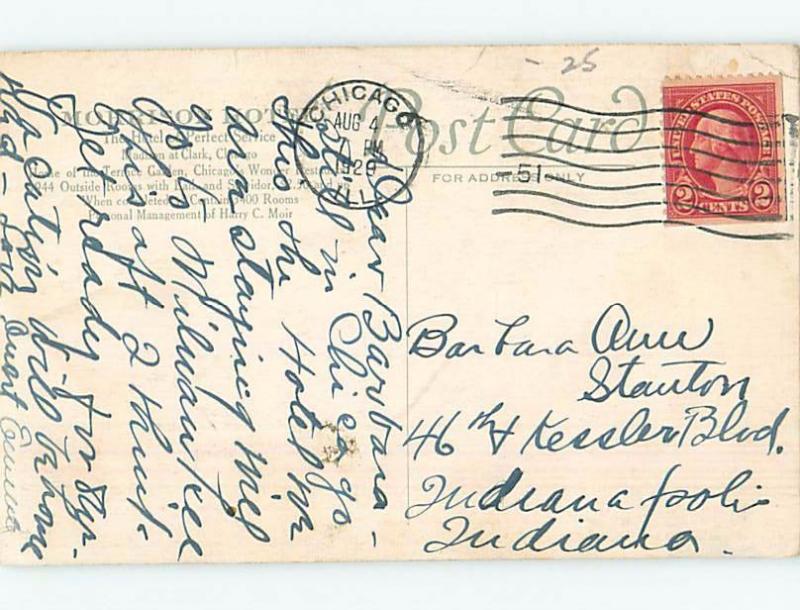 - 25
Post Card
FOR ADDRESS ONLY
CHICAGO
AUG 4
PM
1929
ILL.
51
UNITED STATES POSTAGE
2 CENTS 2
MORRISON HOTEL
The Hotel of Perfect Service
Madison at Clark, Chicago
Home of the Terrace Garden, Chicago's Wonder Restaurant
1944 Outside Rooms with Bath and Servidor, $2.50 and up
When completed Contains 3400 Rooms
Personal Management of Harry C. Moir
Dear Barbara -
Still in Chicago
This the Hotel we
are staying
as is Milwaukee
this aft I think
Get ready for
will be home
Love Aunt
Barbara Ann
Stanton
46th & Kessler Blvd.
Indianapolis
Indiana.